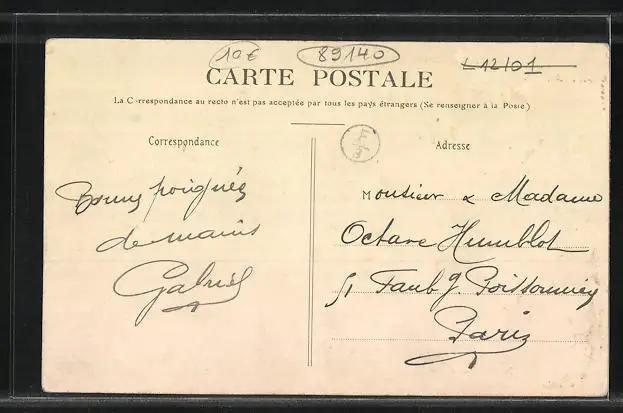 10€
89140
L12101
CARTE POSTALE
La Correspondance au recto n'est pas acceptée par tous les pays étrangers (Se renseigner à la Poste.)
Correspondance
Adresse
Bonnes poignées
de mains
Gabriel
Monsieur & Madame
Octave Humblot
51 Faubg. Poissonnière
Paris